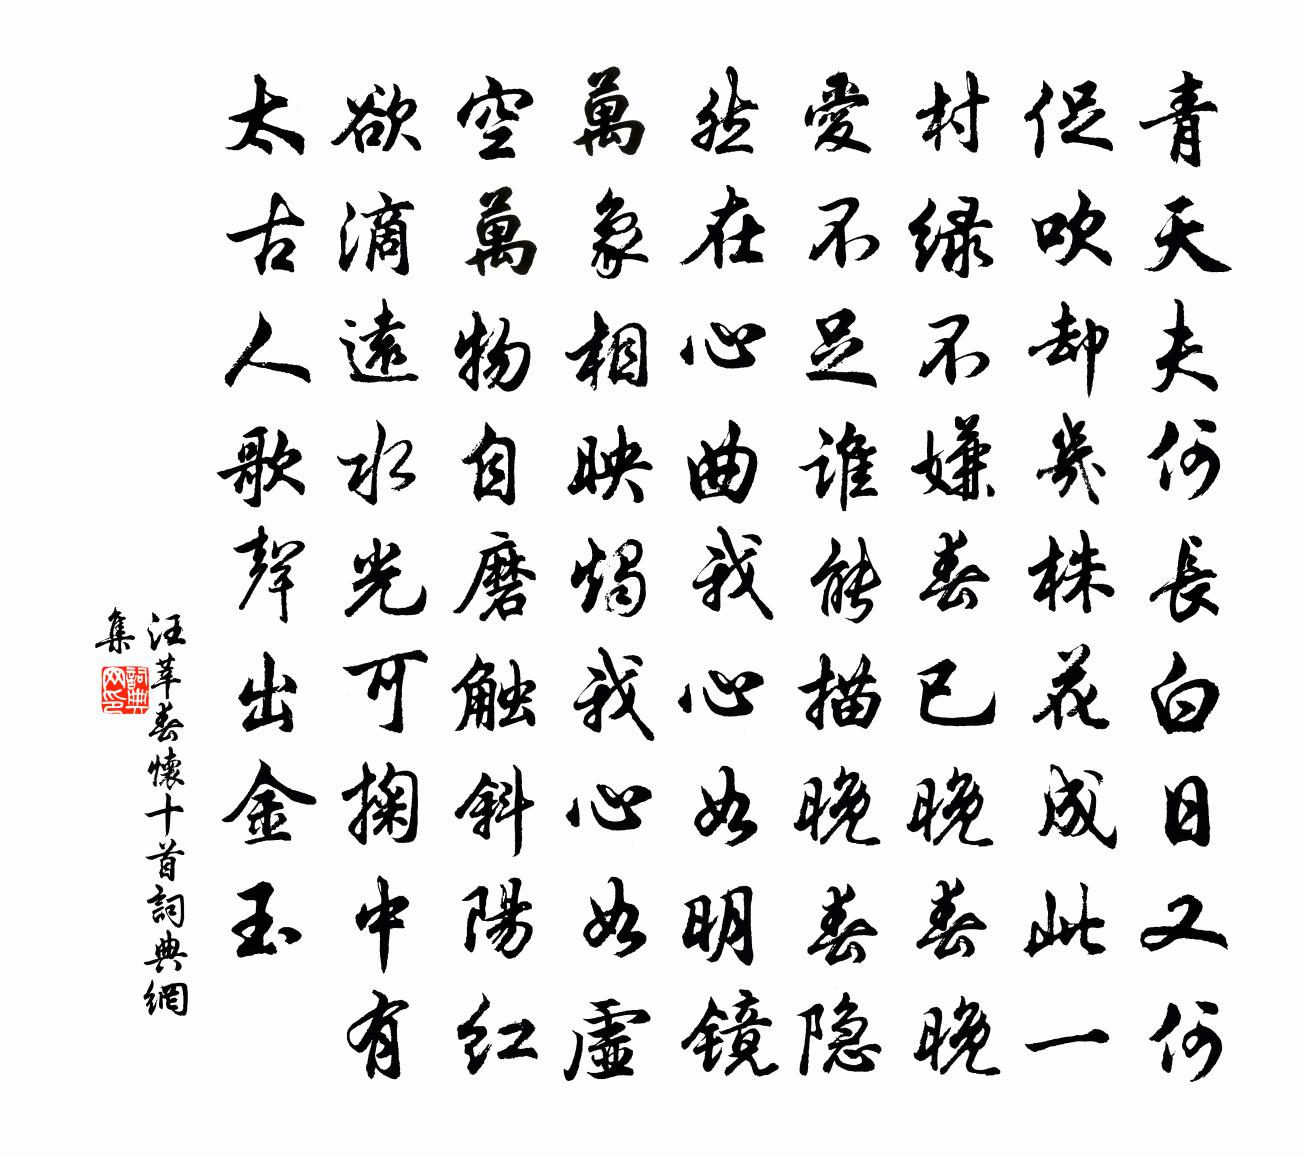 青天夫何長白日又何
促吹却幾株花成此一
村緑不嫌春已晚春晚
愛不足誰能描晚春隐
然在心曲我心如明镜
萬象相映燭我心如虚
空萬物自磨触斜陽红
欲滴遠水光可掬中有
太古人歌聲出金玉
汪莘春懷十首詞典網
集
詞典网印